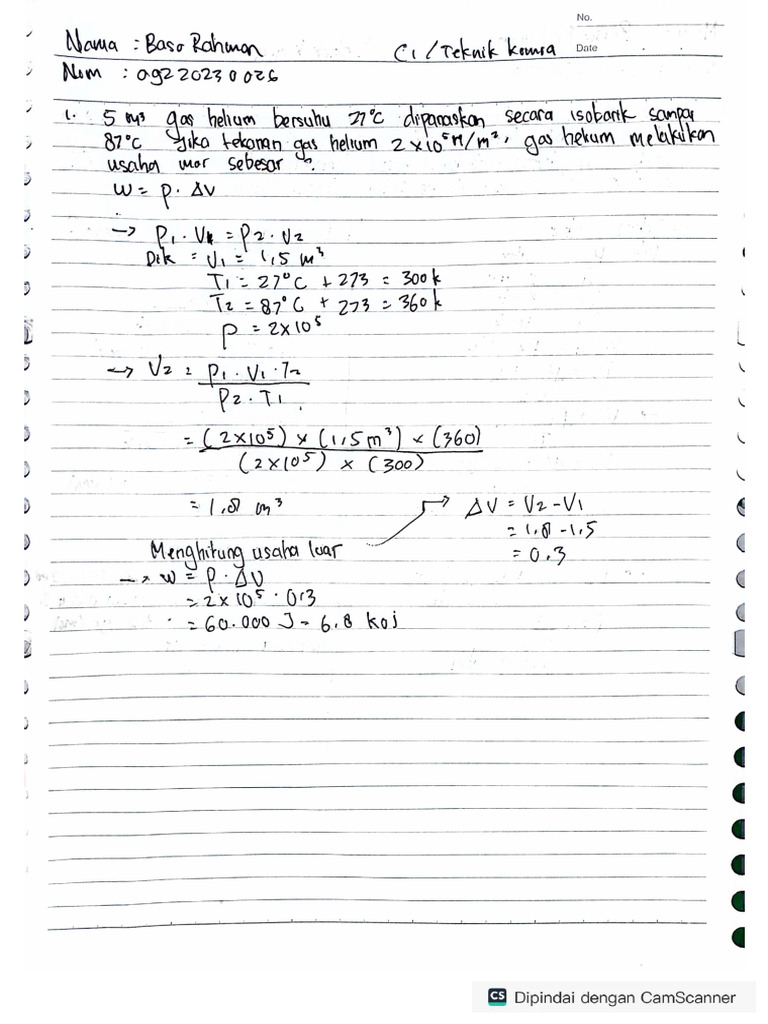 No.
Nama : Baso Rahman C1/Teknik kimia Date
Nim : 09220230026
1. 5 m³ gas helium bersuhu 27°C dipanaskan secara isobarik sampai
87°C jika tekanan gas helium 2×10⁵N/m², gas helium melakukan
usaha luar sebesar ?
W = P · ΔV
→ P1 · V1 = P2 · V2
Dik = V1 = 1,5 m³
T1 = 27°C + 273 = 300k
T2 = 87°C + 273 = 360k
P = 2×10⁵
→ V2 = P1 · V1 · T2
P2 · T1
= (2×10⁵) × (1,5m³) × (360)
(2×10⁵) × (300)
= 1,8 m³ → ΔV = V2 - V1
= 1,8 - 1,5
Menghitung usaha luar = 0.3
→ W = P · ΔV
= 2×10⁵ · 0,3
= 60.000 J = 6.8 koj
CS Dipindai dengan CamScanner